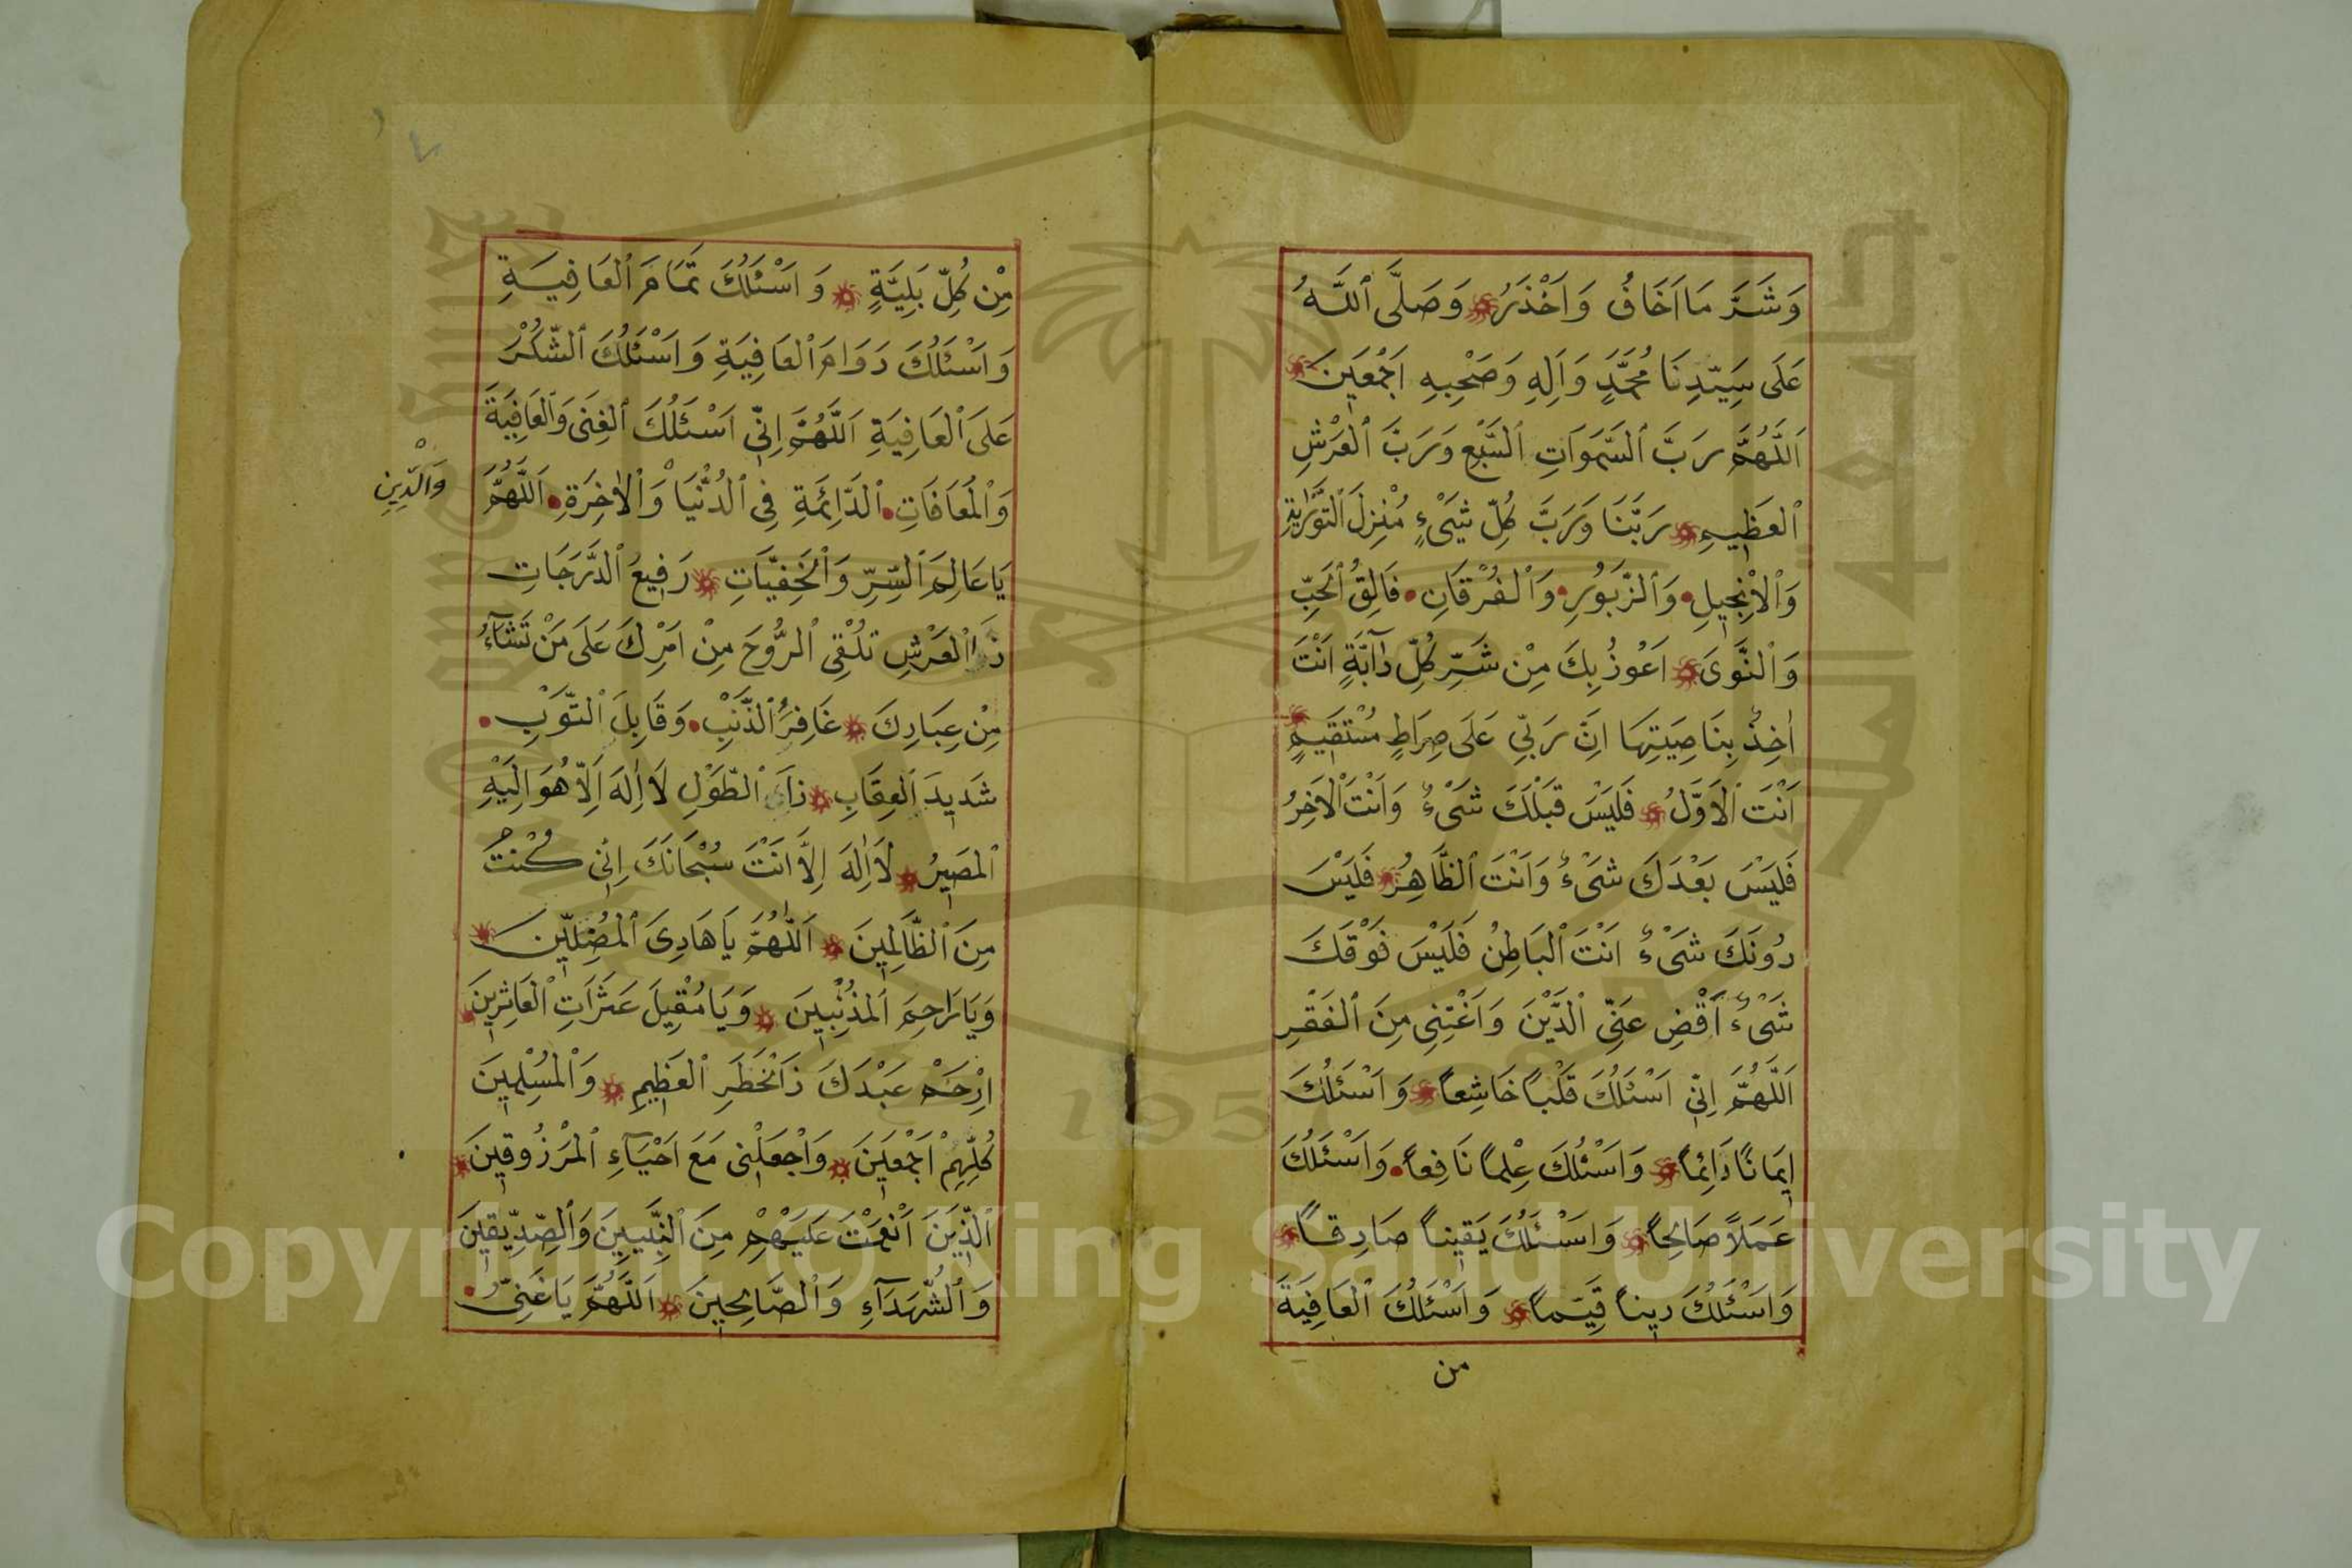 وَشَرَّ مَا اَخَافُ وَاَحْذَرُ وَصَلَّى ٱللّٰهُ
عَلَى سَيِّدِنَا مُحَمَّدٍ وَاٰلِهِ وَصَحْبِهِ اَجْمَعِينَ
اَللّٰهُمَّ رَبَّ ٱلسَّمَوَاتِ ٱلسَّبْعِ وَرَبَّ ٱلْعَرْشِ
ٱلْعَظِيمِ رَبَّنَا وَرَبَّ كُلِّ شَىْءٍ مُنْزِلَ ٱلتَّوْرٰيةِ
وَٱلْاِنْجِيلِ وَٱلزَّبُورِ وَٱلْفُرْقَانِ فَالِقُ ٱلْحَبِّ
وَٱلنَّوَى اَعُوذُ بِكَ مِنْ شَرِّ كُلِّ دَآبَّةٍ اَنْتَ
اٰخِذٌ بِنَاصِيَتِهَا اِنَّ رَبِّي عَلَى صِرَاطٍ مُسْتَقِيمٍ
اَنْتَ ٱلْاَوَّلُ فَلَيْسَ قَبْلَكَ شَىْءٌ وَاَنْتَ ٱلْاٰخِرُ
فَلَيْسَ بَعْدَكَ شَىْءٌ وَاَنْتَ ٱلظَّاهِرُ فَلَيْسَ
دُونَكَ شَىْءٌ اَنْتَ ٱلْبَاطِنُ فَلَيْسَ فَوْقَكَ
شَىْءٌ اَقْضِ عَنِّي ٱلدَّيْنَ وَاَغْنِنِي مِنَ ٱلْفَقْرِ
اَللّٰهُمَّ اِنِّي اَسْئَلُكَ قَلْبًا خَاشِعاً وَاَسْئَلُكَ
اِيمَانًا دَائِماً وَاَسْئَلُكَ عِلْماً نَافِعاً وَاَسْئَلُكَ
عَمَلاً صَالِحاً وَاَسْئَلُكَ يَقِيناً صَادِقاً
وَاَسْئَلُكَ دِيناً قَيِّماً وَاَسْئَلُكَ ٱلْعَافِيَةَ
من
مِنْ كُلِّ بَلِيَّةٍ وَاَسْئَلُكَ تَمَامَ ٱلْعَافِيَةِ
وَاَسْئَلُكَ دَوَامَ ٱلْعَافِيَةِ وَاَسْئَلُكَ ٱلشُّكْرَ
عَلَى ٱلْعَافِيَةِ اَللّٰهُمَّ اِنِّي اَسْئَلُكَ ٱلْغِنَى وَٱلْعَافِيَةَ
وَٱلْمُعَافَاتِ ٱلدَّائِمَةِ فِي ٱلدُّنْيَا وَٱلْاٰخِرَةِ اَللّٰهُمَّ
وَالدِّينِ
يَا عَالِمَ ٱلسِّرِّ وَٱلْخَفِيَّاتِ رَفِيعُ ٱلدَّرَجَاتِ
ذَا ٱلْعَرْشِ تُلْقِي ٱلرُّوحَ مِنْ اَمْرِكَ عَلَى مَنْ تَشَآءُ
مِنْ عِبَادِكَ غَافِرُ ٱلذَّنْبِ وَقَابِلَ ٱلتَّوْبِ
شَدِيدَ ٱلْعِقَابِ ذَا ٱلطَّوْلِ لَا اِلٰهَ اِلَّا هُوَ اِلَيْهِ
ٱلْمَصِيرُ لَا اِلٰهَ اِلَّا اَنْتَ سُبْحَانَكَ اِنِّي كُنْتُ
مِنَ ٱلظَّالِمِينَ اَللّٰهُمَّ يَا هَادِيَ ٱلْمُضِلِّينَ
وَيَا رَاحِمَ ٱلْمُذْنِبِينَ وَيَا مُقِيلَ عَثَرَاتِ ٱلْعَاثِرِينَ
اِرْحَمْ عَبْدَكَ ذَا ٱلْخَطَرِ ٱلْعَظِيمِ وَٱلْمُسْلِمِينَ
كُلِّهِمْ اَجْمَعِينَ وَاجْعَلْنِي مَعَ اَحْيَآءِ ٱلْمَرْزُوقِينَ
ٱلَّذِينَ اَنْعَمْتَ عَلَيْهِمْ مِنَ ٱلنَّبِيِّينَ وَٱلصِّدِّيقِينَ
وَٱلشُّهَدَآءِ وَٱلصَّالِحِينَ اَللّٰهُمَّ يَا غَنِيُّ
Copyright © King Saud University